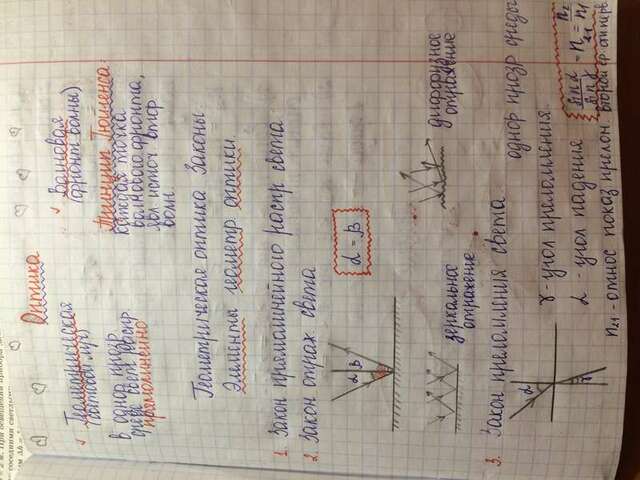 = 2 м. При освещении прибора
соседними светлы
Оптика
✓ Геометрическая
(световой луч)
в однор прозр
среде свет распр
прямолинейно
✓ Волновая
(фронт волны)
Принцип Гюйгенса
каждая точка
волнового фронта,
явл источ втор
волн.
Геометрическая оптика Законы
Элементы геометр оптики.
1. Закон прямолинейного распр света
2. Закон отраж. света
α β
α = β
зеркальное
отражение
диффузное
отражение
3. Закон преломления света
однор прозр среды
α
γ
γ - угол преломления.
α - угол падения
sin α / sin γ = n21 = n2 / n1
n21 - относ показ прелом. второй ср. от перв.